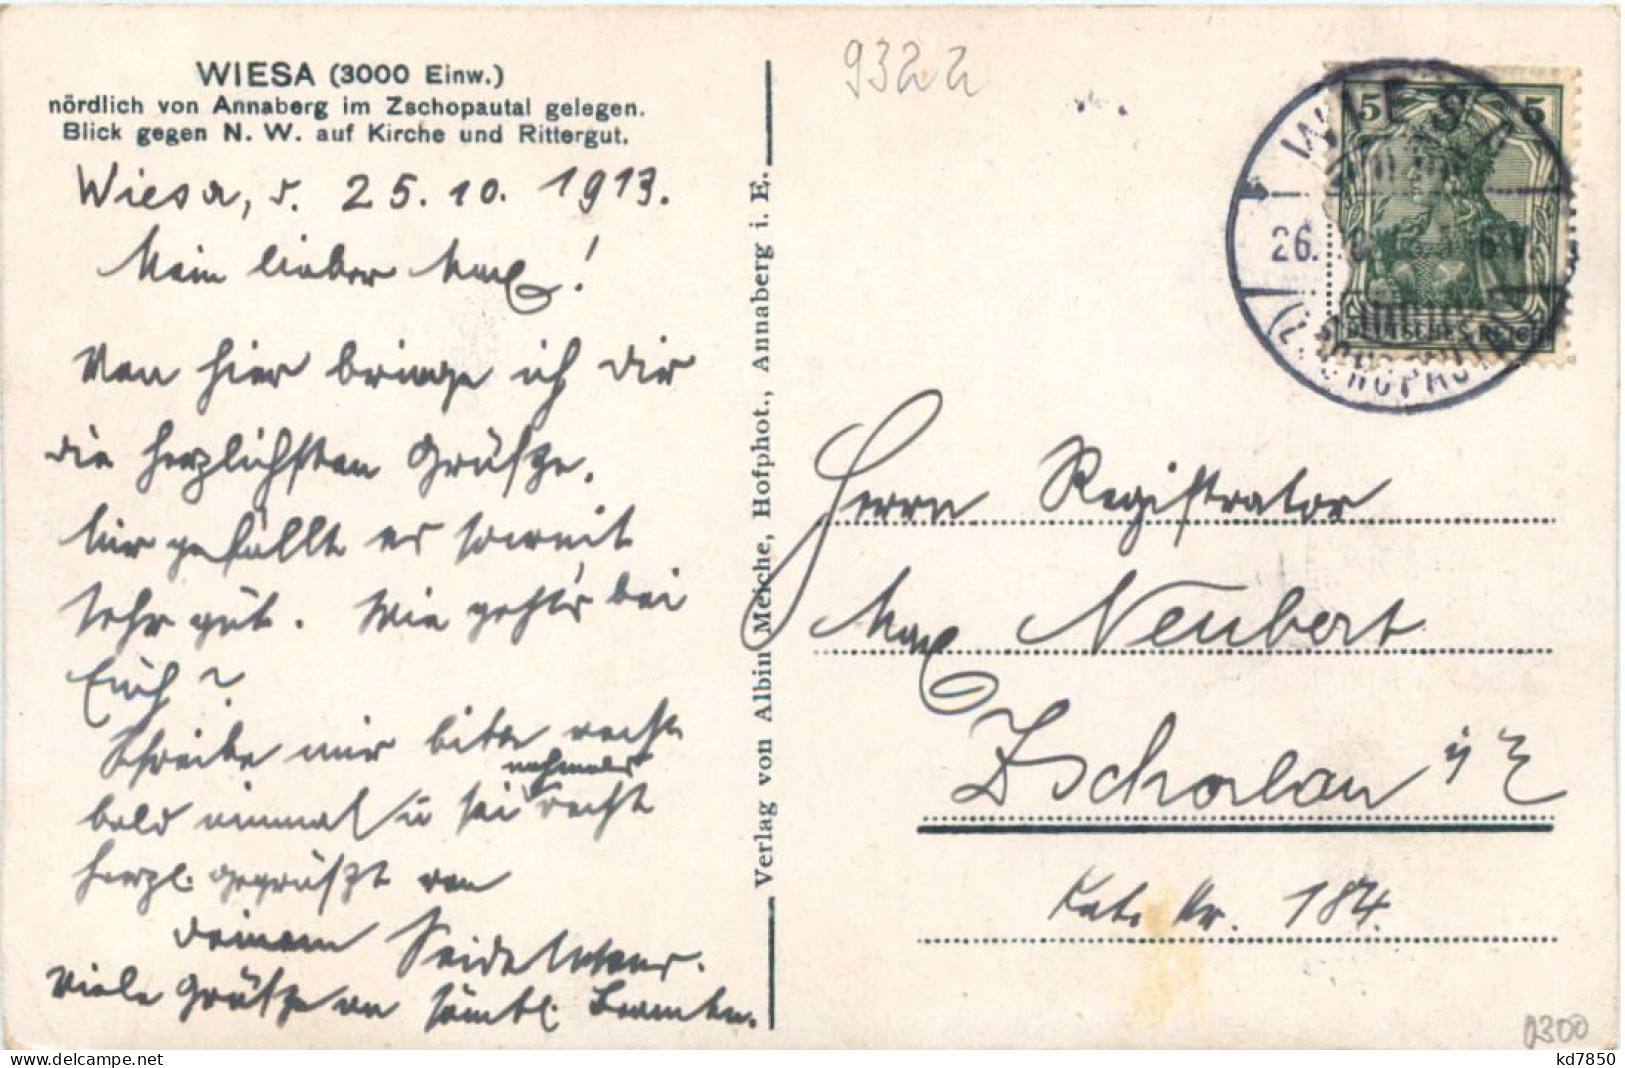 WIESA (3000 Einw.)
nördlich von Annaberg im Zschopautal gelegen.
Blick gegen N. W. auf Kirche und Rittergut.
Wiesa, d. 25. 10. 1913.
Mein lieber Max!
Von hier bringe ich Dir
die herzlichsten Grüße.
Mir gefällt es soweit
sehr gut. Wie geht's bei
Euch?
Schreibe mir bitte recht
bald einmal u sei nochmals recht
herzl. gegrüßt von
Deinem
Viele Grüße an sämtl. Beamten.
Verlag von Albin Meiche, Hofphot., Annaberg i. E.
9322
WIESA
26.
(ZSCHOPAUTAL)
5 5
DEUTSCHES REICH
Herrn Registrator
Max Neubert
Zschorlau i E
Kat. Nr. 184.
0300
kd7850